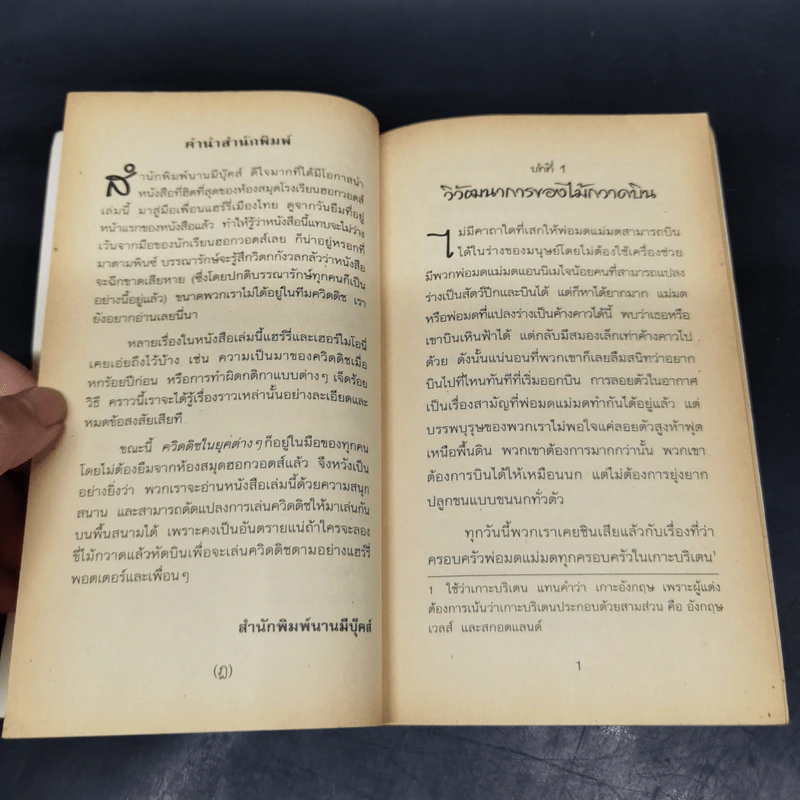 คำนำสำนักพิมพ์
สำนักพิมพ์นานมีบุ๊คส์ ดีใจมากที่ได้มีโอกาสนำ
หนังสือที่ฮิตที่สุดของห้องสมุดโรงเรียนฮอกวอตส์
เล่มนี้ มาสู่มือเพื่อนแฮร์รี่เมืองไทย ดูจากวันยืมที่อยู่
หน้าแรกของหนังสือแล้ว ทำให้รู้ว่าหนังสือนี้แทบจะไม่ว่าง
เว้นจากมือของนักเรียนฮอกวอตส์เลย ก็น่าอยู่หรอกที่
มาดามพินซ์ บรรณารักษ์จะรู้สึกวิตกกังวลกลัวว่าหนังสือ
จะฉีกขาดเสียหาย (ซึ่งโดยปกติบรรณารักษ์ทุกคนก็เป็น
อย่างนี้อยู่แล้ว) ขนาดพวกเราไม่ได้อยู่ในทีมควิดดิช เรา
ยังอยากอ่านเลยนี่นา
หลายเรื่องในหนังสือเล่มนี้แฮร์รี่และเฮอร์ไมโอนี่
เคยเอ่ยถึงไว้บ้าง เช่น ความเป็นมาของควิดดิชเมื่อ
หกร้อยปีก่อน หรือการทำผิดกติกาแบบต่างๆ เจ็ดร้อย
วิธี คราวนี้เราจะได้รู้เรื่องราวเหล่านั้นอย่างละเอียดและ
หมดข้อสงสัยเสียที
ขณะนี้ ควิดดิชในยุคต่างๆ ก็อยู่ในมือของทุกคน
โดยไม่ต้องยืมจากห้องสมุดฮอกวอตส์แล้ว จึงหวังเป็น
อย่างยิ่งว่า พวกเราจะอ่านหนังสือเล่มนี้ด้วยความสนุก
สนาน และสามารถดัดแปลงการเล่นควิดดิชให้มาเล่นกัน
บนพื้นสนามได้ เพราะคงเป็นอันตรายแน่ถ้าใครจะลอง
ขี่ไม้กวาดแล้วหัดบินเพื่อจะเล่นควิดดิชตามอย่างแฮร์รี่
พอตเตอร์และเพื่อนๆ
สำนักพิมพ์นานมีบุ๊คส์
(ฎ)
บทที่ 1
วิวัฒนาการของไม้กวาดบิน
ไม่มีคาถาใดที่เสกให้พ่อมดแม่มดสามารถบิน
ได้ในร่างของมนุษย์โดยไม่ต้องใช้เครื่องช่วย
มีพวกพ่อมดแม่มดแอนนิเมไจน้อยคนที่สามารถแปลง
ร่างเป็นสัตว์ปีกและบินได้ แต่ก็หาได้ยากมาก แม่มด
หรือพ่อมดที่แปลงร่างเป็นค้างคาวได้นี้ พบว่าเธอหรือ
เขาบินเหินฟ้าได้ แต่กลับมีสมองเล็กเท่าค้างคาวไป
ด้วย ดังนั้นแน่นอนที่พวกเขาก็เลยลืมสนิทว่าอยาก
บินไปที่ไหนทันทีที่เริ่มออกบิน การลอยตัวในอากาศ
เป็นเรื่องสามัญที่พ่อมดแม่มดทำกันได้อยู่แล้ว แต่
บรรพบุรุษของพวกเราไม่พอใจแค่ลอยตัวสูงห้าฟุต
เหนือพื้นดิน พวกเขาต้องการมากกว่านั้น พวกเขา
ต้องการบินได้ให้เหมือนนก แต่ไม่ต้องการยุ่งยาก
ปลูกขนแบบขนนกทั่วตัว
ทุกวันนี้พวกเราเคยชินเสียแล้วกับเรื่องที่ว่า
ครอบครัวพ่อมดแม่มดทุกครอบครัวในเกาะบริเตน¹
1 ใช้ว่าเกาะบริเตน แทนคำว่า เกาะอังกฤษ เพราะผู้แต่ง
ต้องการเน้นว่าเกาะบริเตนประกอบด้วยสามส่วน คือ อังกฤษ
เวลส์ และสกอตแลนด์
1